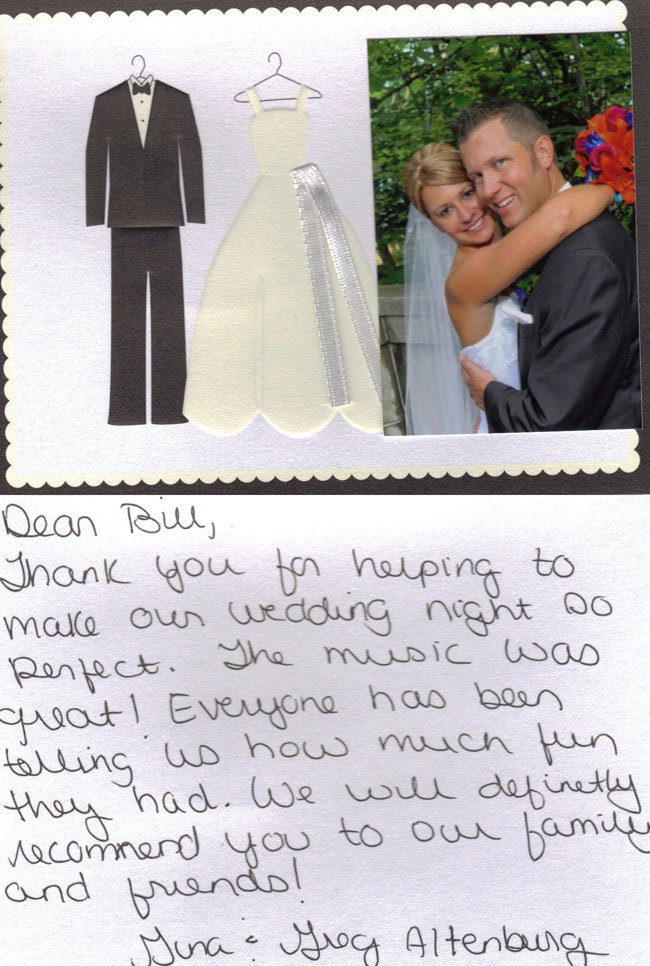 Dear Bill,
Thank you for helping to
make our wedding night so
perfect. The music was
great! Everyone has been
telling us how much fun
they had. We will definetly
recommend you to our family
and friends!
Gina & Greg Altenburg